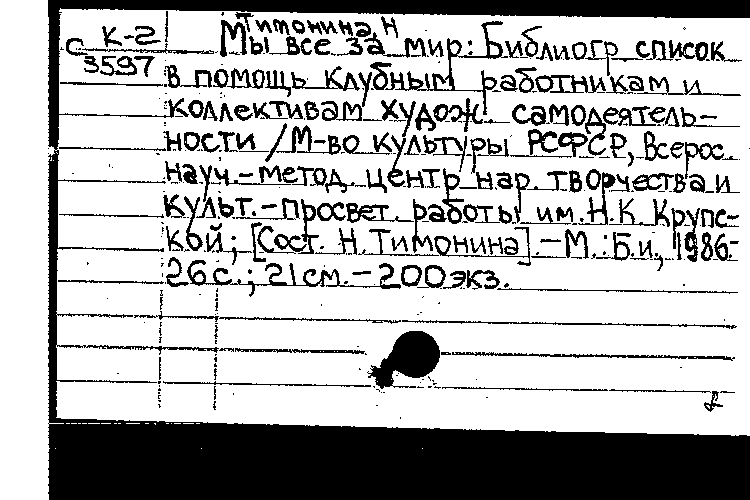 Тимонина, Н
К-2
С 3597
Мы все за мир: Библиогр список
в помощь клубным работникам и
коллективам худож. самодеятель-
ности / М-во культуры РСФСР, Всерос.
науч.-метод. центр нар. творчества и
культ.-просвет. работы им. Н.К. Крупс-
кой; [Сост. Н. Тимонина].-М.: Б.и., 1986-
26с.; 21см.-200экз.